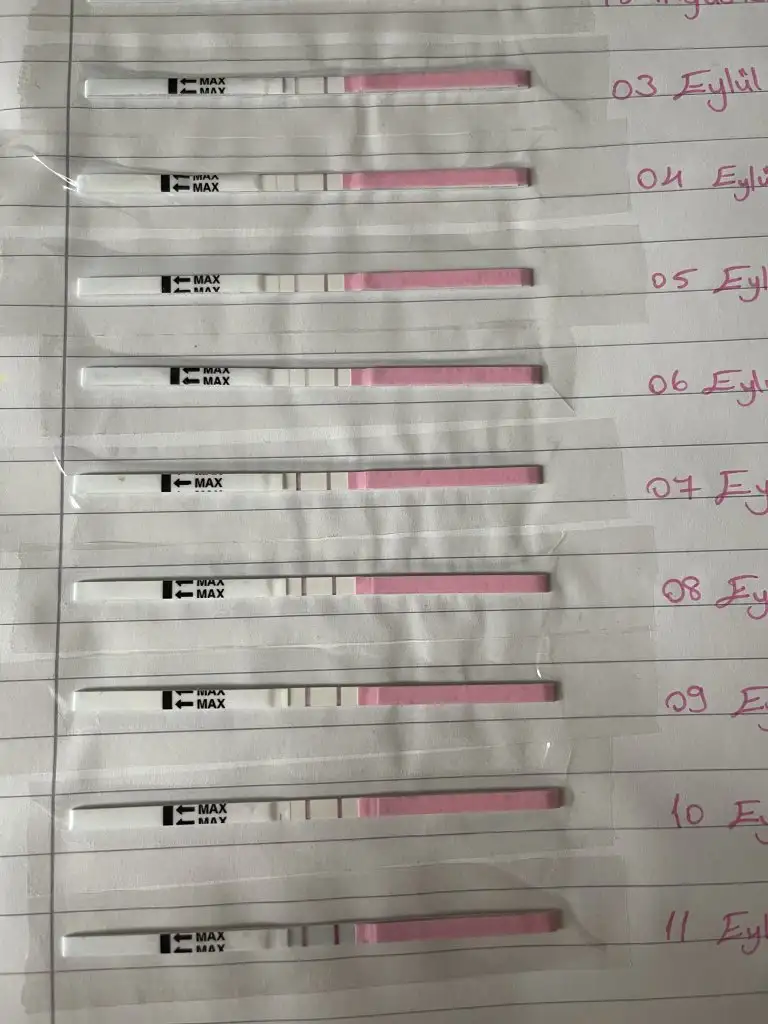 MAX
MAX
03 Eylül
MAX
MAX
04 Eylü
MAX
MAX
05 Eyl
MAX
MAX
06 Eylü
MAX
07 Ey
MAX
MAX
08 Ey
MAX
MAX
09 E
MAX
MAX
10 Ey
MAX
MAX
11 Eyl